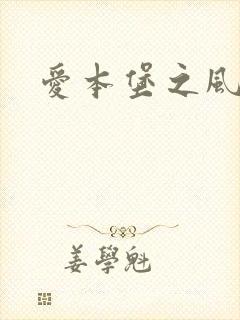 愛本堡之風
姜學魁